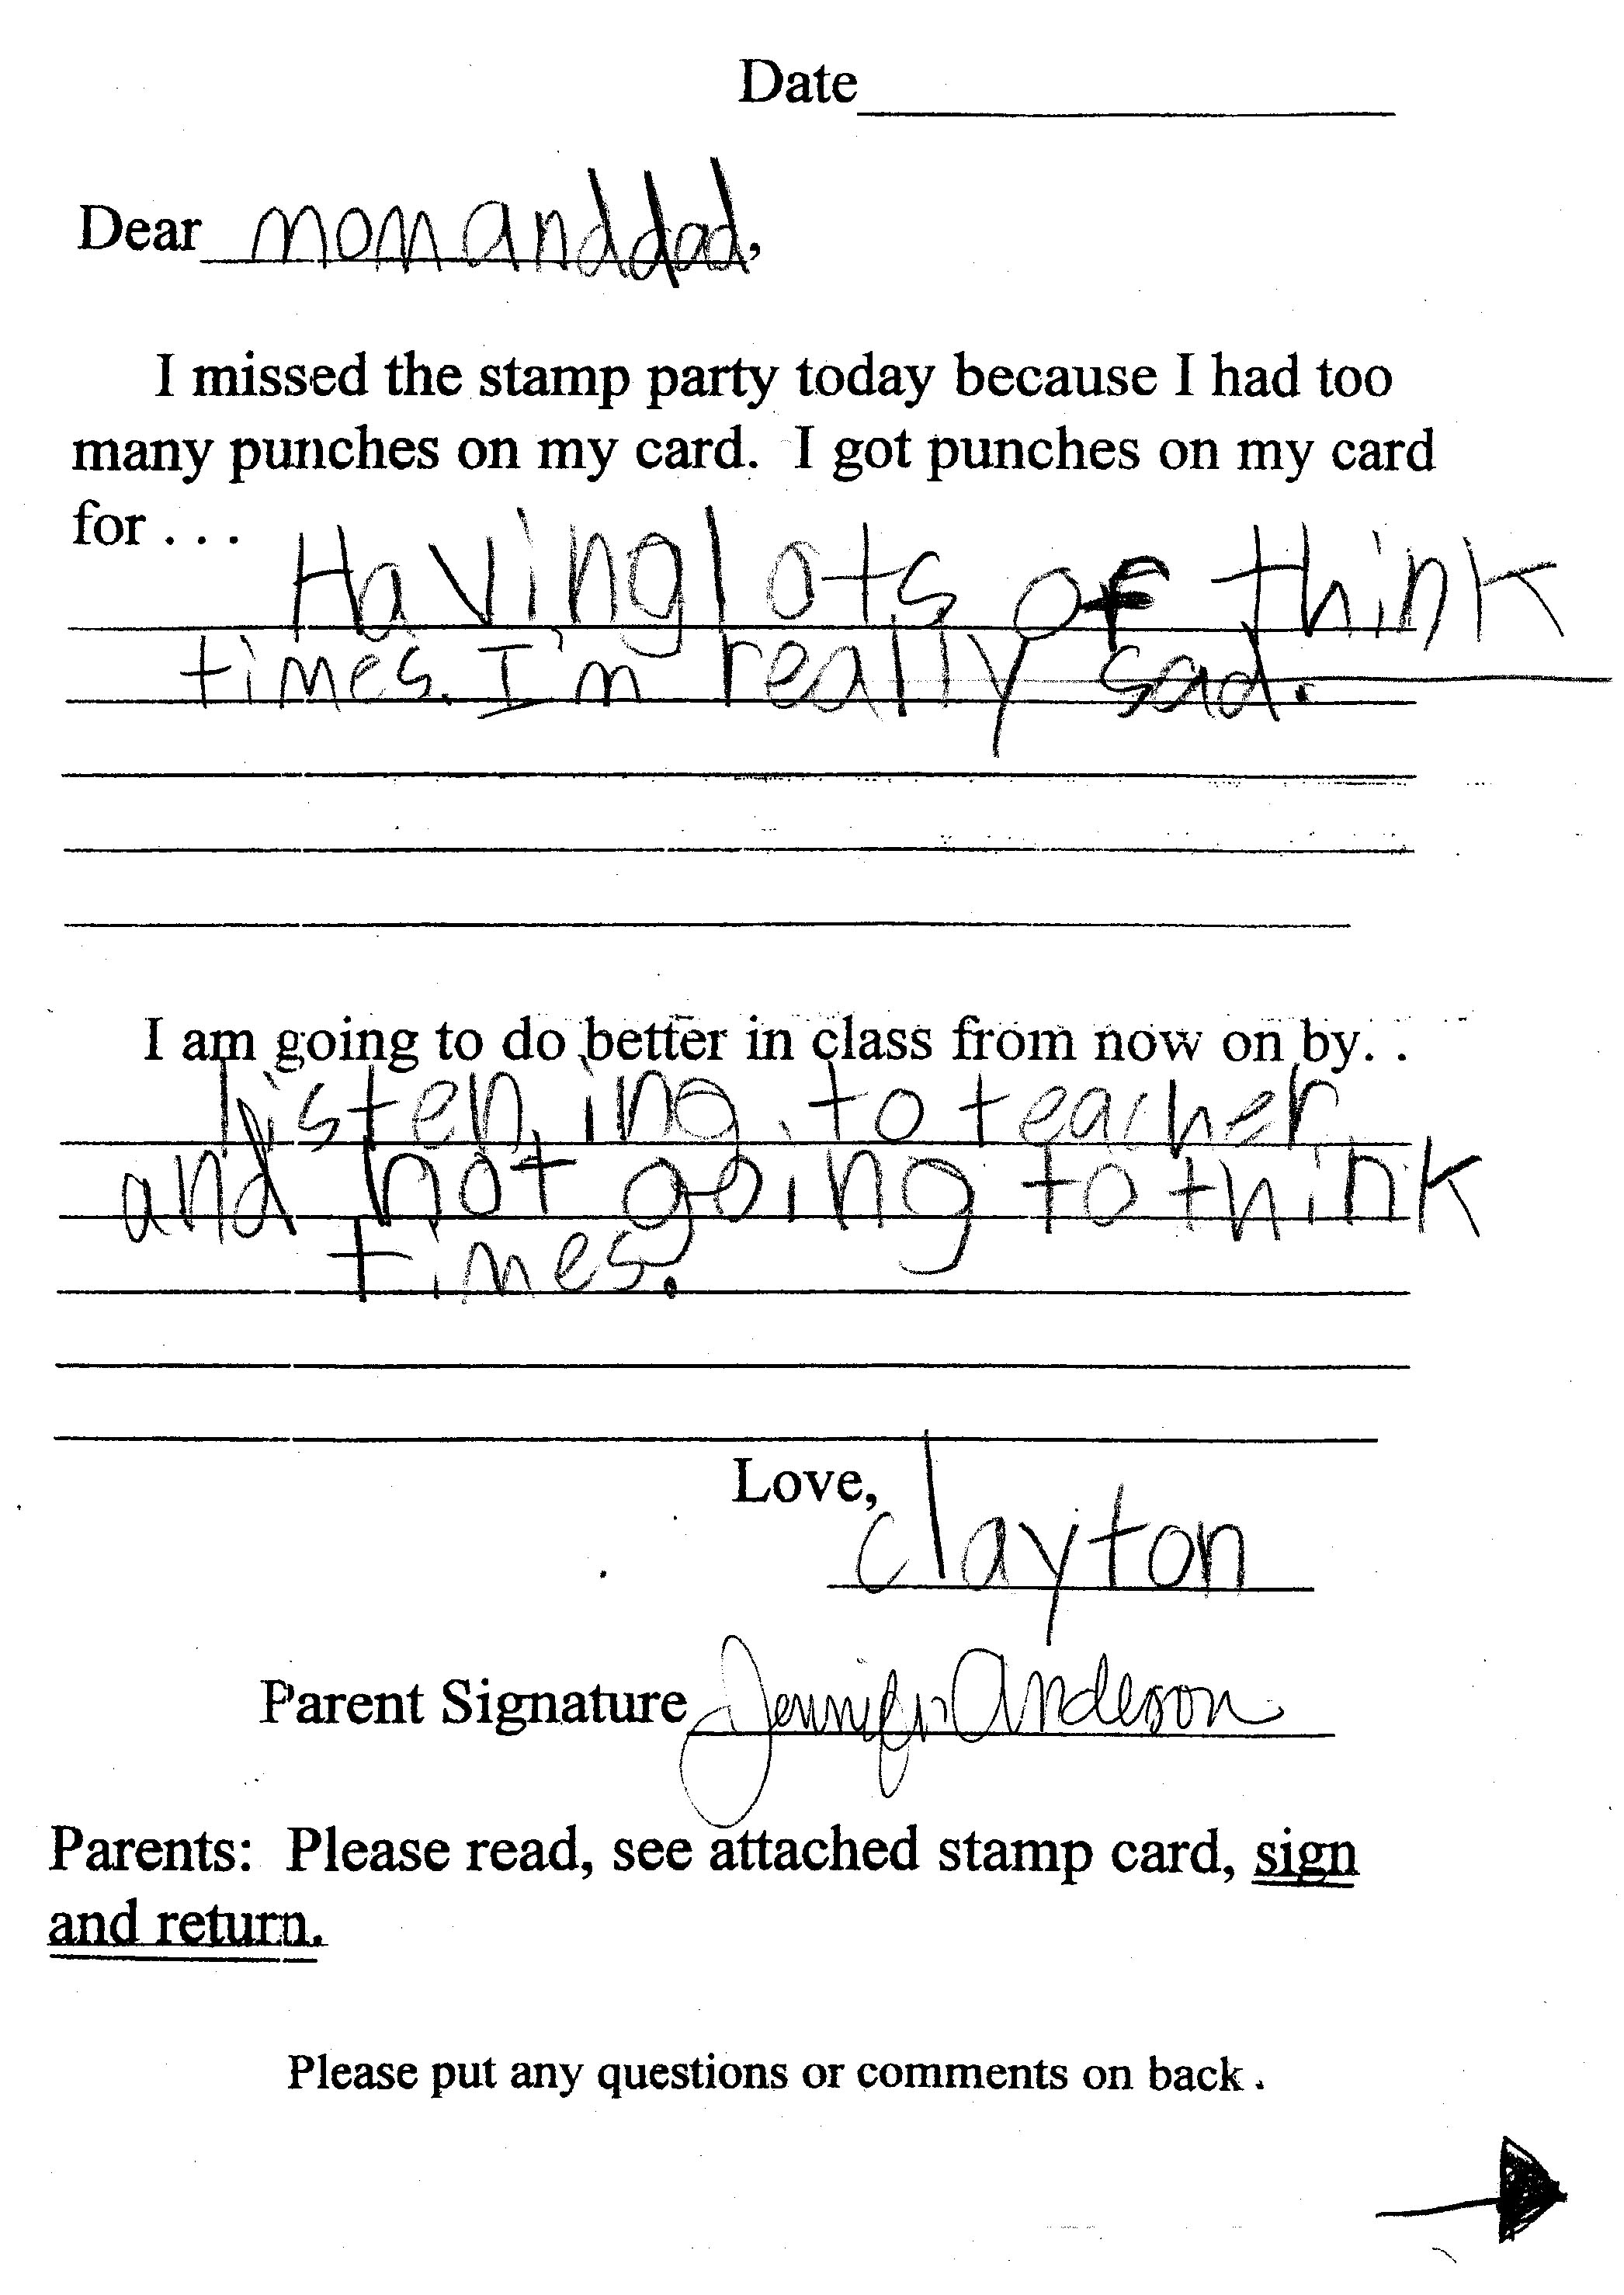 Date
Dear mom and dad,
I missed the stamp party today because I had too
many punches on my card. I got punches on my card
for . . .
Having lots of think
times. I'm really sad.
I am going to do better in class from now on by. .
listening to teacher
and not going to think
times.
Love,
clayton
Parent Signature Jennifer Anderson
Parents: Please read, see attached stamp card, sign
and return.
Please put any questions or comments on back.